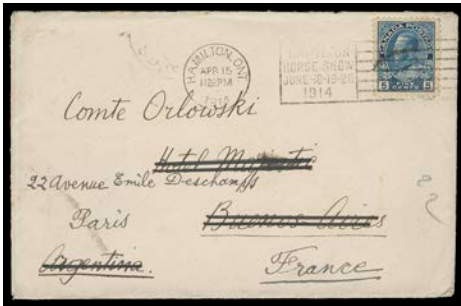 HAMILTON, ONT.
APR 15
1914
HAMILTON
HORSE SHOW
1914
CANADA POSTAGE
5 CENTS 5
Comte Orlowski
Hotel Majestic
22 Avenue Emile Deschamps
Paris
Buenos Aires
Argentina.
France